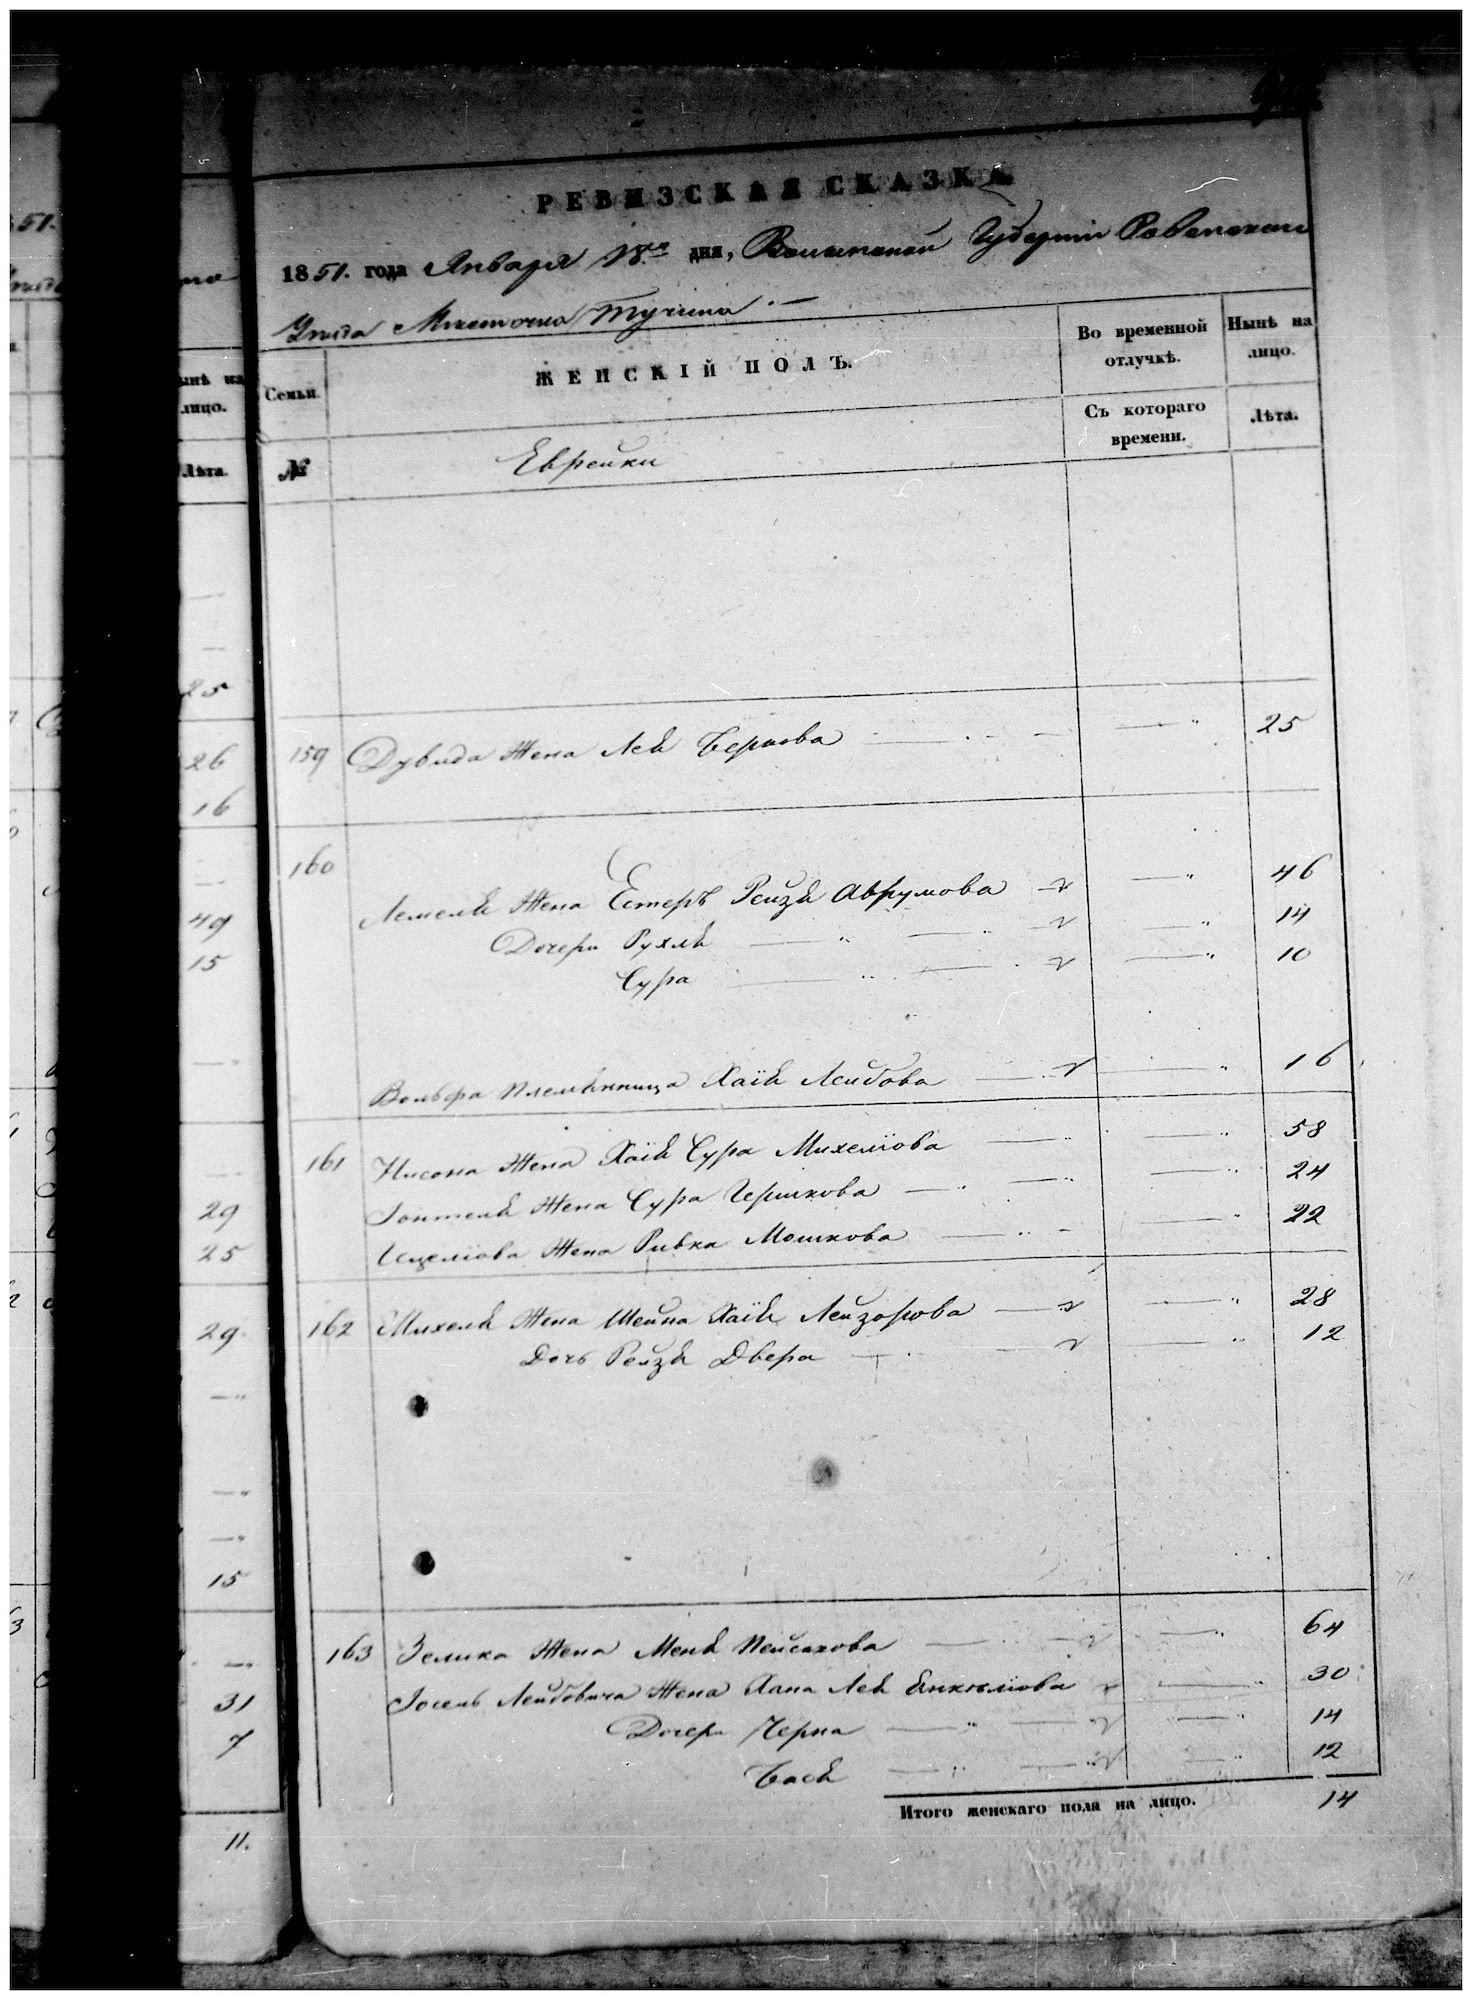 РЕВИЗСКАЯ СКАЗКА
1851. года Января 18го дня, Волынской Губерніи Ровенского
Уѣзда Мѣстечка Тучина
Семьи.
ЖЕНСКІЙ ПОЛЪ.
Во временной отлучкѣ.
Нынѣ на лицо.
№
Еврейки
Съ котораго времени.
Лѣта.
159 Дувида Жена Леѣ Беркова 25
160
Лемелѣ Жена Естеръ Рейзѣ Аврумова 46
Дочери Рухлѣ 14
Сура 10
Вольфа племѣнница Хаіѣ Лейбова 16
161 Нисона Жена Хаіѣ Сура Михеліова 58
Жена Сура Гершкова 24
Жена Ривка Мошкова 22
162 Михелѣ Жена Шейна Хаіѣ Лейзорова 28
Дочь Рейзѣ Двера 12
163 Зелика Жена Менѣ Пейсахова 64
Лейбовича Жена Хана Леѣ Янкеліова 30
Дочери Черна 14
Басѣ 12
Итого женскаго пола на лицо. 14
51.
ынѣ на
лицо.
Лѣта.
25
26
16
49
15
29
25
29
15
31
7
11.